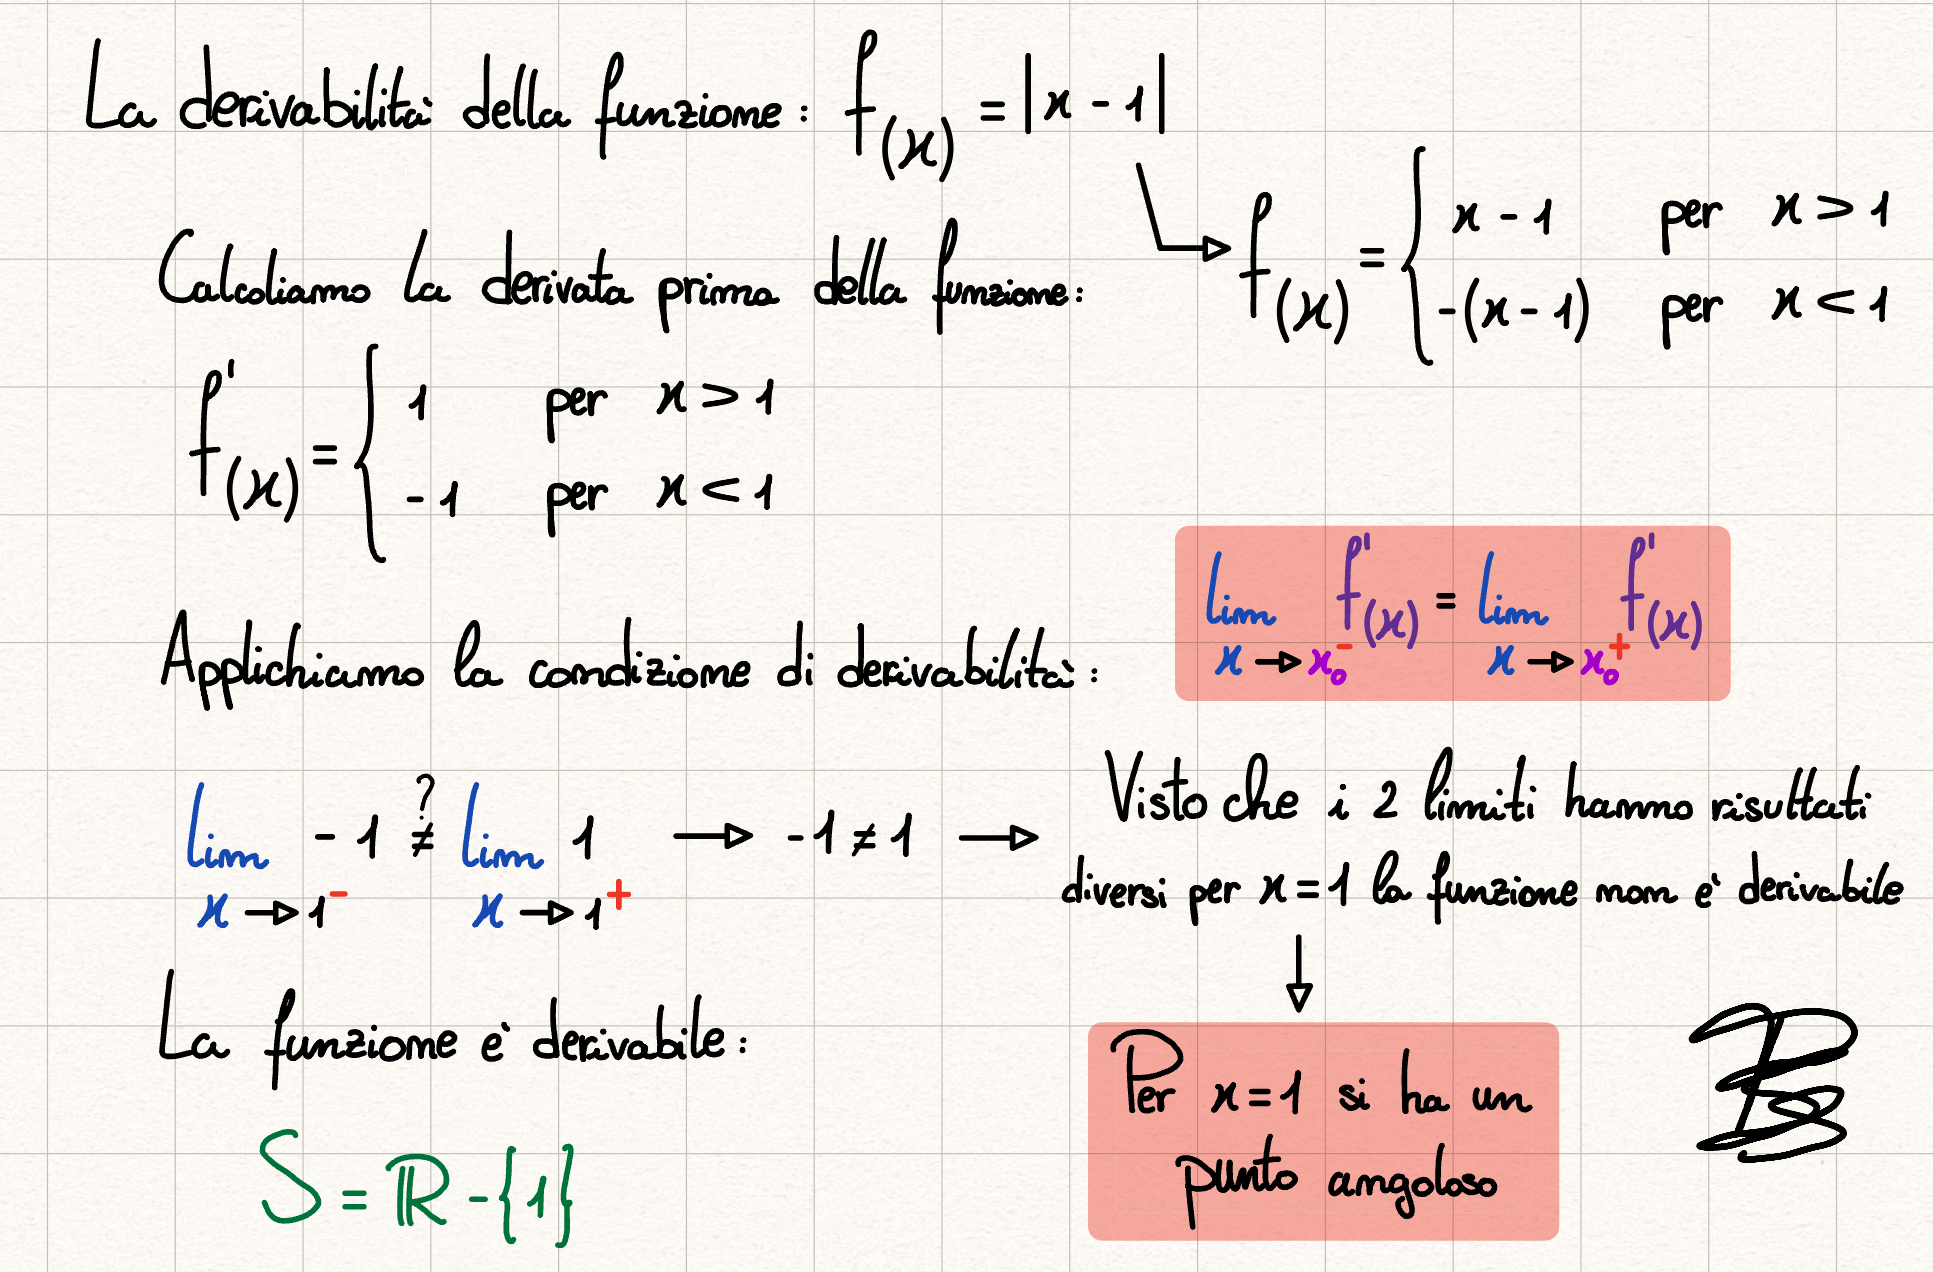 La derivabilità della funzione: f(x) = |x - 1|
f(x) = { x - 1 per x > 1
-(x - 1) per x < 1
Calcoliamo la derivata prima della funzione:
f'(x) = { 1 per x > 1
-1 per x < 1
Applichiamo la condizione di derivabilità:
lim x→x₀⁻ f'(x) = lim x→x₀⁺ f'(x)
lim x→1⁻ -1 ≠? lim x→1⁺ 1 → -1 ≠ 1 →
Visto che i 2 limiti hanno risultati
diversi per x = 1 la funzione non è derivabile
La funzione è derivabile:
S = ℝ - {1}
Per x = 1 si ha un
punto angoloso